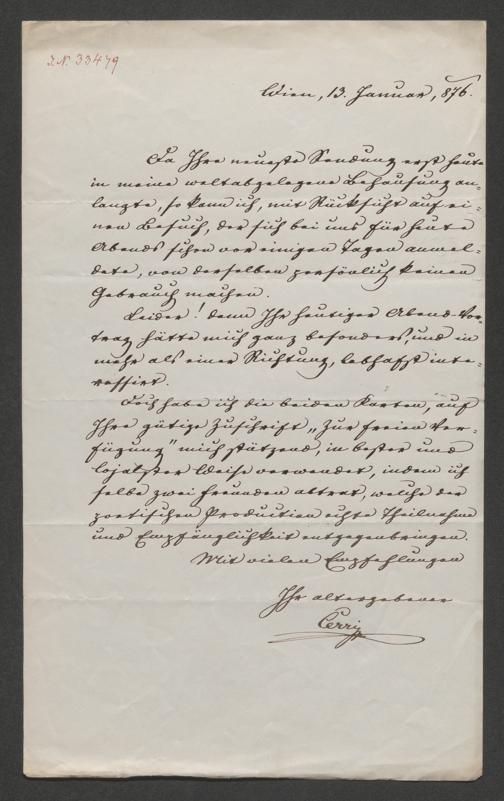 I.N. 33479
Wien, 13. Januar, 876.
Da Ihre neueste Sendung erst heute
in meine weltabgelegene Behausung an-
langte, so kann ich, mit Rücksicht auf ei-
nen Besuch, der sich bei uns für heute
Abends schon vor einigen Tagen anmel-
dete, von derselben persönlich keinen
Gebrauch machen.
Leider! denn Ihr heutiger Abend-Vor-
trag hätte mich ganz besonders, und in
mehr als einer Richtung, lebhaftst inte-
ressirt.
Doch habe ich die beiden Karten, auf
Ihre gütige Zuschrift „zur freien Ver-
fügung" mich stützend, in bester und
lojalster Weise verwendet, indem ich
selbe zwei Freunden abtrat, welche der
poetischen Production echte Theilnahme
und Empfänglichkeit entgegenbringen.
Mit vielen Empfehlungen
Ihr altergebener
Cerri